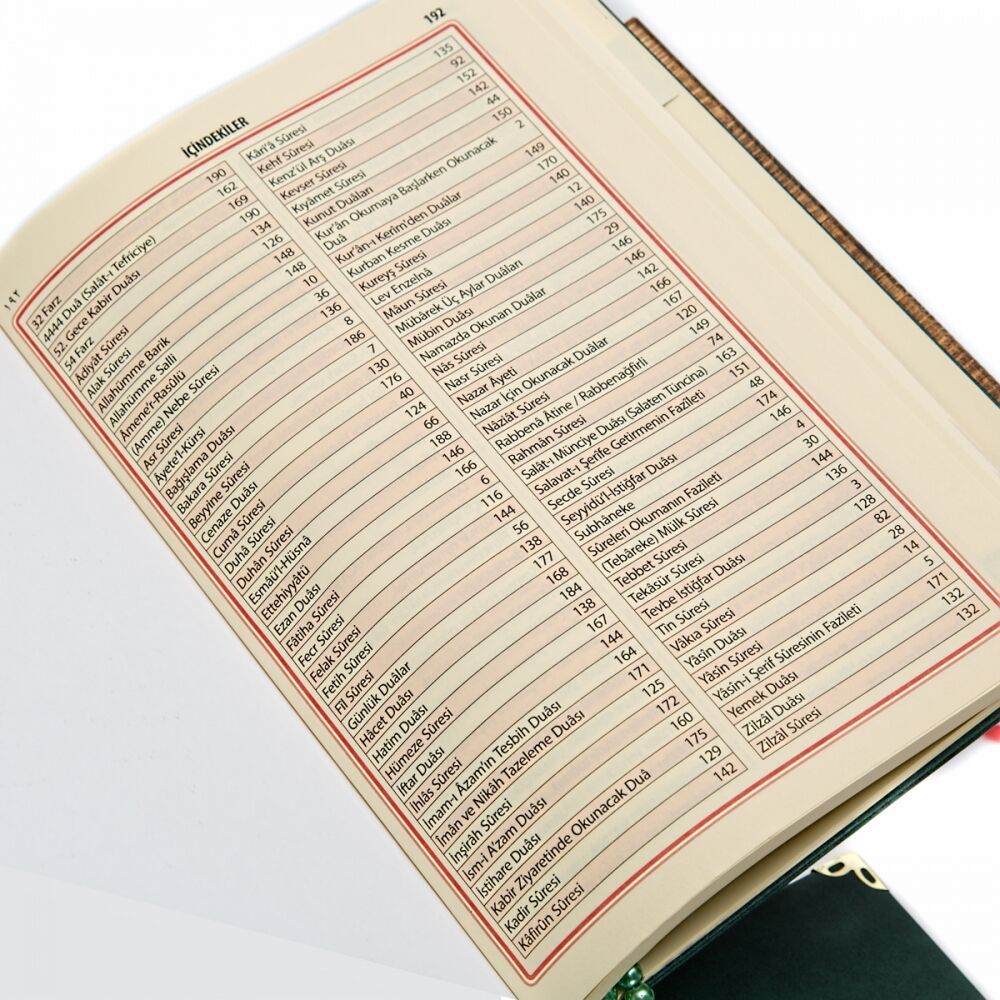 192
١٩٢
İÇİNDEKİLER
32 Farz 190
4444 Duâ (Salât-ı Tefriciye) 162
52. Gece Kabir Duâsı 169
54 Farz 190
Âdiyât Sûresi 134
Alak Sûresi 126
Allahümme Barik 148
Allahümme Salli 148
Âmene'r-Rasûlü 10
(Amme) Nebe Sûresi 36
Asr Sûresi 136
Âyete'l-Kürsi 8
Bağışlama Duâsı 186
Bakara Sûresi 7
Beyyine Sûresi 130
Cenaze Duâsı 176
Cumâ Sûresi 40
Duhâ Sûresi 124
Duhân Sûresi 66
Esmâü'l-Hüsnâ 188
Ettehiyyatü 146
Ezan Duâsı 166
Fâtiha Sûresi 6
Fecr Sûresi 116
Felak Sûresi 144
Fetih Sûresi 56
Fil Sûresi 138
Günlük Dualar 177
Hâcet Duâsı 168
Hatim Duâsı 184
Hümeze Sûresi 138
İftar Duâsı 167
İhlâs Sûresi 144
İmam-ı Âzam'ın Tesbih Duâsı 164
Îmân ve Nikâh Tazeleme Duâsı 171
İnşirâh Sûresi 125
İsm-i A'zam Duâsı 172
İstihare Duâsı 160
Kabir Ziyaretinde Okunacak Duâ 175
Kadir Sûresi 129
Kâfirûn Sûresi 142
Kâri'â Sûresi 135
Kehf Sûresi 92
Kenz'ül Arş Duâsı 152
Kevser Sûresi 142
Kıyâmet Sûresi 44
Kunut Duâları 150
Kur'ân Okumaya Başlarken Okunacak 2
Duâ
Kur'ân-ı Kerîm'den Dualar 149
Kurban Kesme Duâsı 170
Kureyş Sûresi 140
Lev Enzelnâ 12
Mâun Sûresi 140
Mübârek Üç Aylar Duâları 175
Mübin Duâsı 29
Namazda Okunan Dualar 146
Nâs Sûresi 146
Nasr Sûresi 142
Nazar Âyeti 166
Nazar İçin Okunacak Duâlar 167
Nâziât Sûresi 120
Rabbenâ Âtine / Rabbenağfirli 149
Rahmân Sûresi 74
Salât-ı Münciye Duâsı (Salaten Tüncina) 163
Salavat-ı Şerife Getirmenin Fazîleti 151
Secde Sûresi 48
Seyyidü'l-İstiğfar Duâsı 174
Subhâneke 146
Sûreleri Okumanın Fazîleti 4
(Tebâreke) Mülk Sûresi 30
Tebbet Sûresi 144
Tekâsür Sûresi 136
Tevbe İstiğfar Duâsı 3
Tin Sûresi 128
Vâkıa Sûresi 82
Yâsin Duâsı 28
Yâsin Sûresi 14
Yâsin-i Şerif Sûresinin Fazîleti 5
Yemek Duâsı 171
Zilzâl Duâsı 132
Zilzâl Sûresi 132